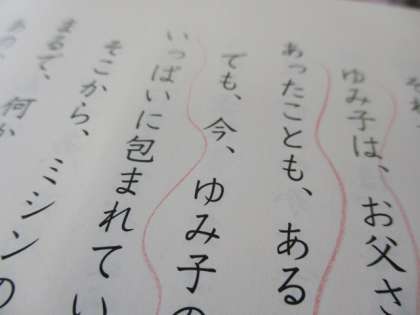 ゆみ子は、お父さ
あったことも、ある
でも、今、ゆみ子の
いっぱいに包まれてい
そこから、ミシンの
まるで、何か